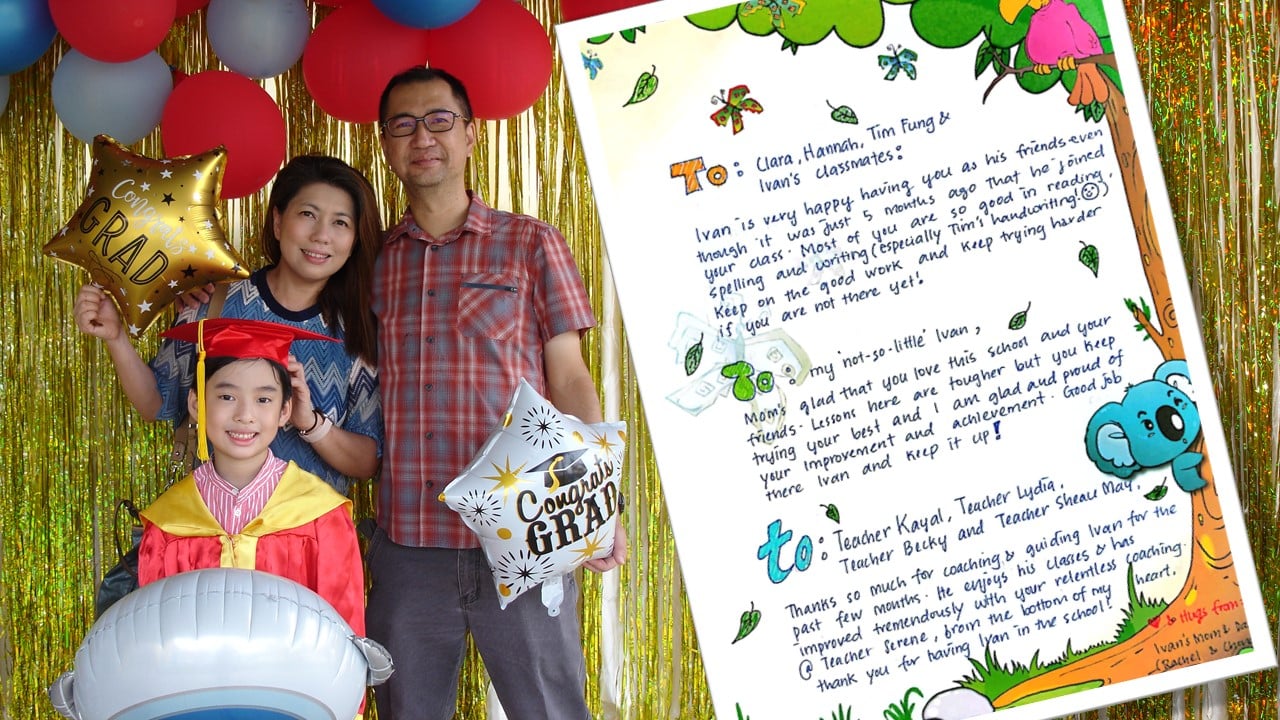 Congrats
GRAD
Congrats
GRAD
To: Clara, Hannah, Tim Fung &
Ivan's classmates:
Ivan is very happy having you as his friends even
though it was just 5 months ago that he joined
your class. Most of you are so good in reading,
spelling and writing (especially Tim's handwriting!)
Keep on the good work and keep trying harder
if you are not there yet!
To: my 'not-so-little' Ivan,
Mom's glad that you love this school and your
friends. Lessons here are tougher but you keep
trying your best and I am glad and proud of
your improvement and achievement. Good job
there Ivan and keep it up!
to: Teacher Kayal, Teacher Lydia,
Teacher Becky and Teacher Sheau May,
Thanks so much for coaching & guiding Ivan for the
past few months. He enjoys his classes & has
improved tremendously with your relentless coaching.
@ Teacher Serene, from the bottom of my heart,
thank you for having Ivan in the school!
& Hugs from:
Ivan's Mom &
(Rachel &